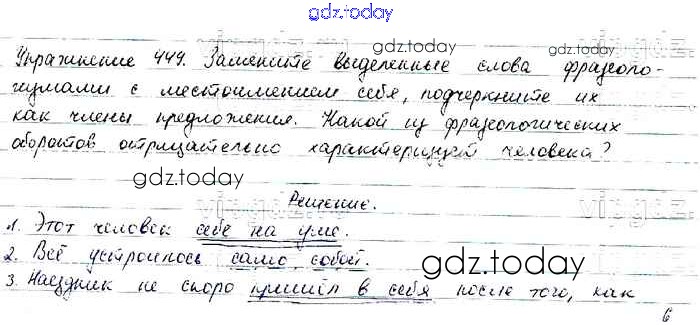 gdz.today
Упражнение 449. Замените выделенные слова фразеоло-
гизмами с местоимением себя, подчеркните их
как члены предложения. Какой из фразеологических
оборотов отрицательно характеризует человека?
gdz.today
Решение.
1. Этот человек себе на уме.
2. Всё устроилось само собой.
3. Наездник не скоро пришёл в себя после того, как
gdz.today
6